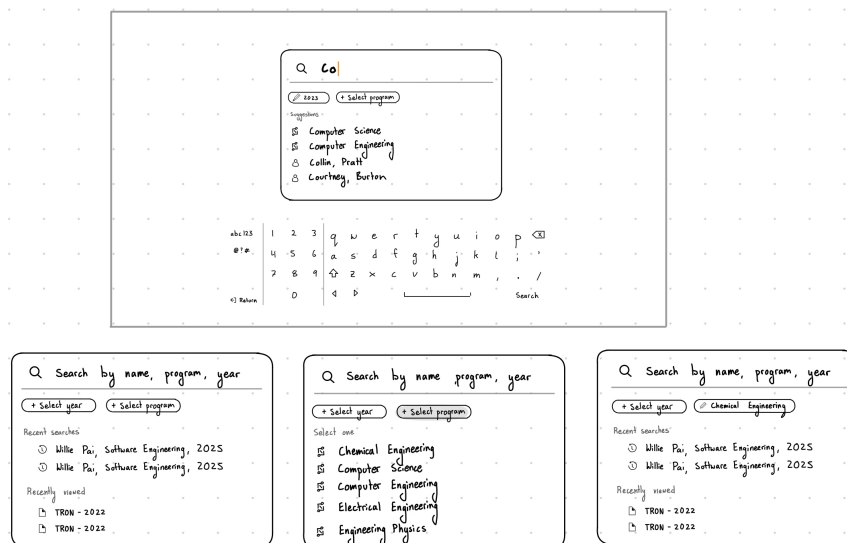 Co
2023 + Select program
Suggestions
Computer Science
Computer Engineering
Collin, Pratt
Courtney, Burton
abc123 1 2 3 q w e r t y u i o p
@?# 4 5 6 a s d f g h j k l ; '
7 8 9 z x c v b n m , . /
Return 0 Search
Search by name, program, year
+ Select year + Select program
Recent searches
Willie Pai, Software Engineering, 2025
Willie Pai, Software Engineering, 2025
Recently viewed
TRON - 2022
TRON - 2022
Search by name, program, year
+ Select year + Select program
Select one
Chemical Engineering
Computer Science
Computer Engineering
Electrical Engineering
Engineering Physics
Search by name, program, year
+ Select year Chemical Engineering
Recent searches
Willie Pai, Software Engineering, 2025
Willie Pai, Software Engineering, 2025
Recently viewed
TRON - 2022
TRON - 2022